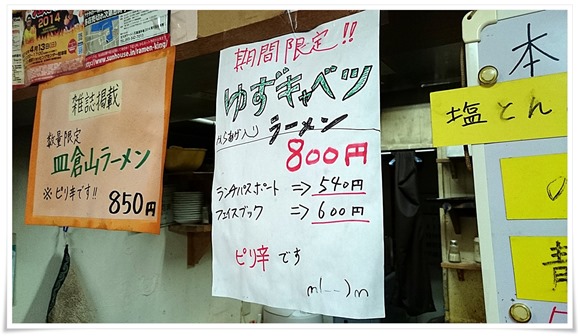 2014
4月13日(日)
http://www.sunhouse.in/ramen-king/
雑誌掲載
数量限定
皿倉山ラーメン
※ピリ辛です!!
850円
期間限定!!
ゆずキャベツ
からあげ入り ラーメン
800円
ランチパスポート => 540円
フェイスブック => 600円
ピリ辛です
m(_ _)m
本
塩とん
の
青